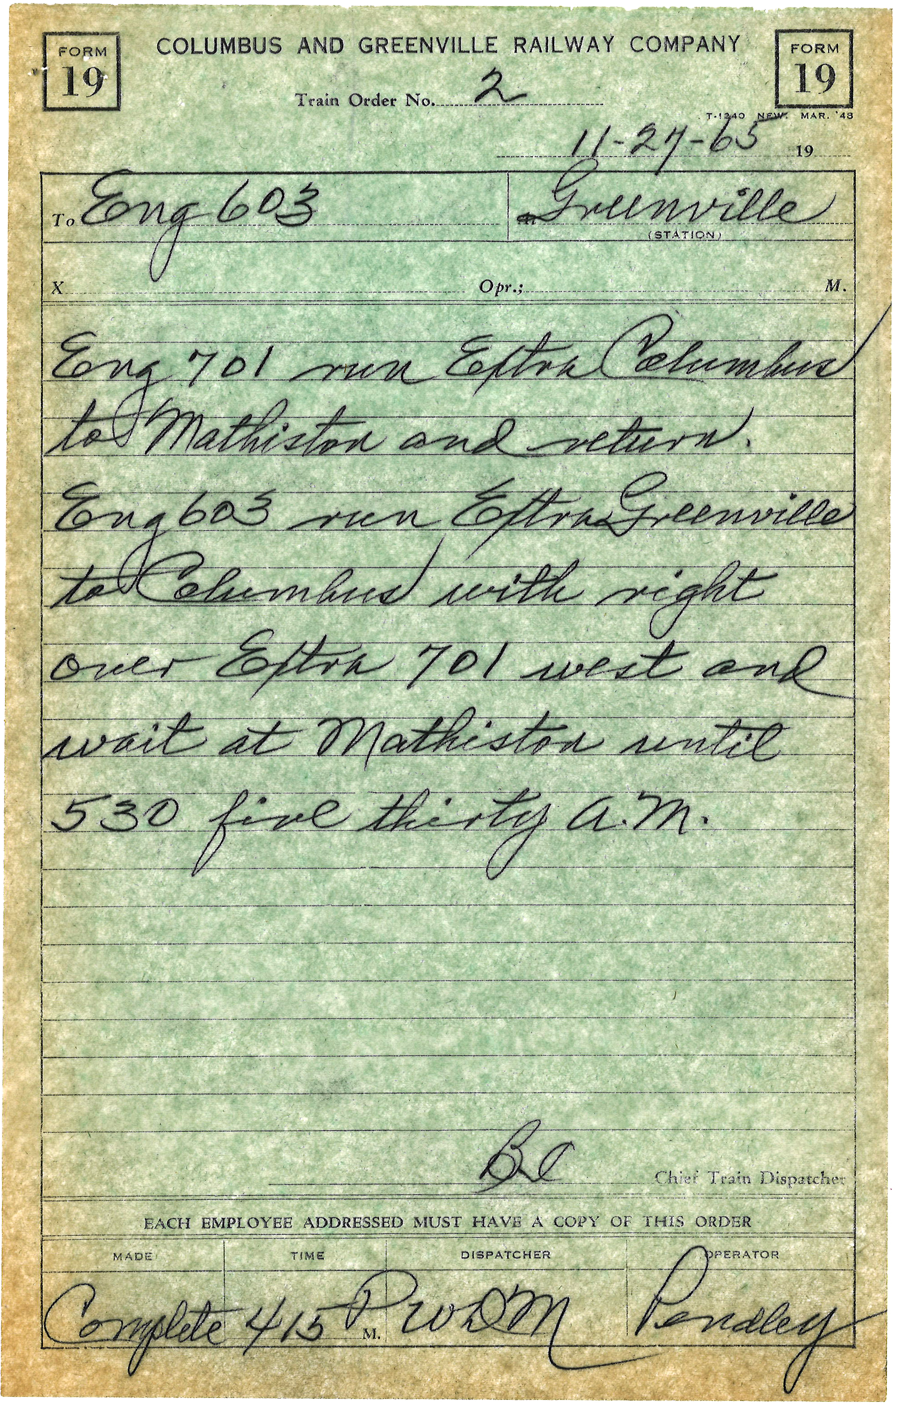 FORM 19
COLUMBUS AND GREENVILLE RAILWAY COMPANY
FORM 19
Train Order No. 2
T-1240 NEW. MAR. '48
11-27-65 19
To Eng 603
At Greenville
(STATION)
X Opr.; M.
Eng 701 run Extra Columbus
to Mathiston and return.
Eng 603 run Extra Greenville
to Columbus with right
over Extra 701 west and
wait at Mathiston until
530 five thirty A.M.
Chief Train Dispatcher
EACH EMPLOYEE ADDRESSED MUST HAVE A COPY OF THIS ORDER
MADE TIME DISPATCHER OPERATOR
Complete 415 P M. WDM Pendley